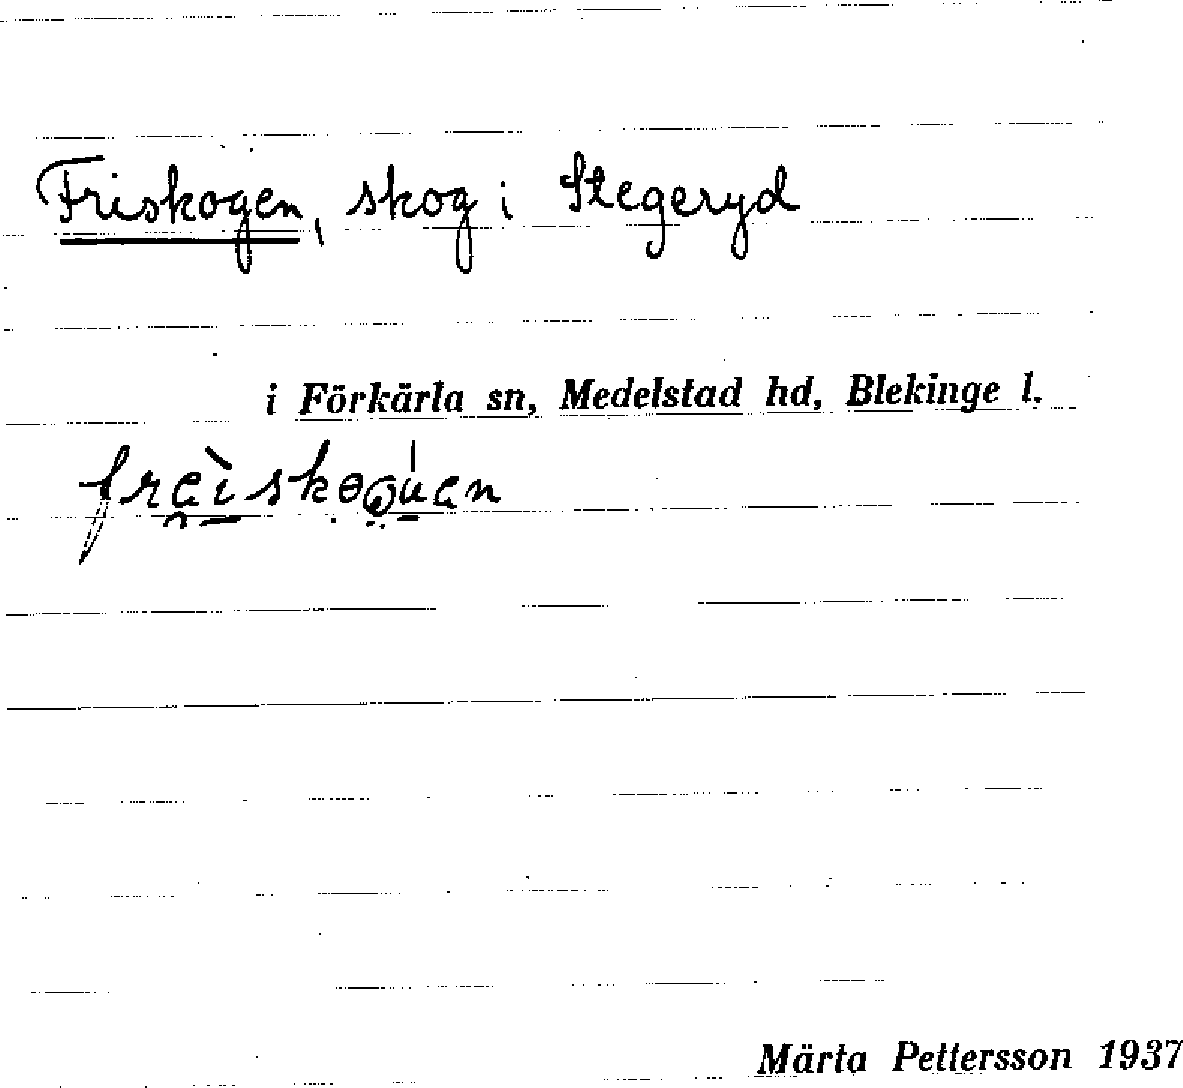 Friskogen, skog i Stegeryd
i Förkärla sn, Medelstad hd, Blekinge l.
Märta Pettersson 1937